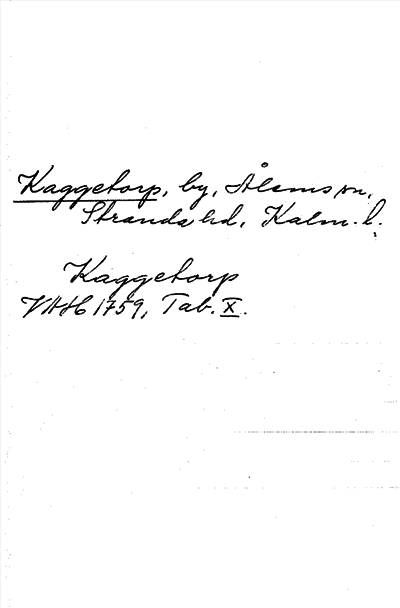 Kaggetorp, by, Ålems sn,
Strands hd, Kalm. l.
Kaggetorp
VAH 1759, Tab. X.